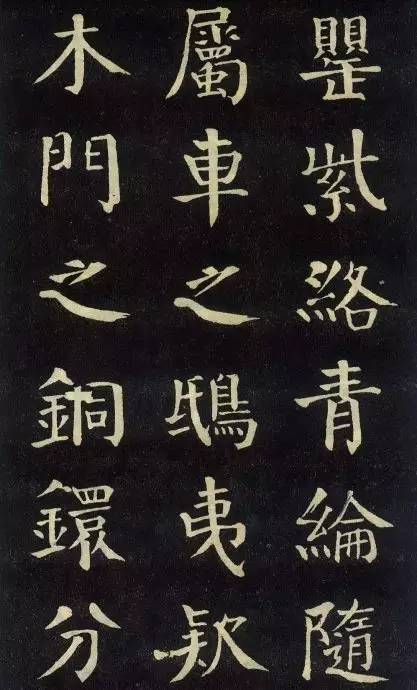 罌紫絡青綸隨
屬車之鴟夷欵
木門之銅鐶分